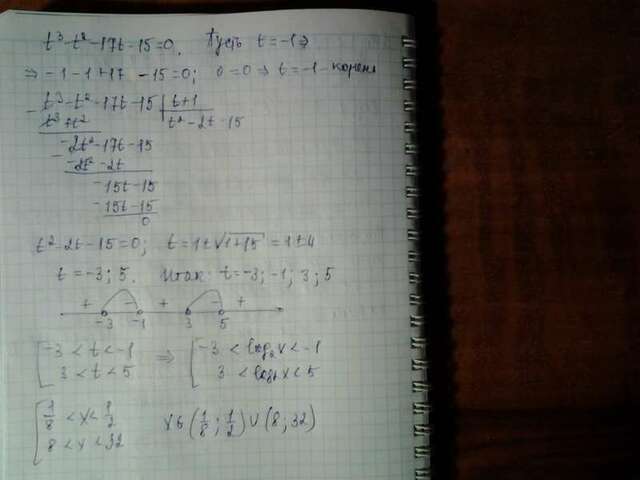 t³-t²-17t-15=0. Пусть t=-1⇒
⇒ -1-1+17 -15=0; 0=0 ⇒ t=-1 - корень
t³-t²-17t-15 | t+1
t³+t² t²-2t-15
-2t²-17t-15
-2t²-2t
-15t-15
-15t-15
0
t²-2t-15=0; t=1±√1+15=1±4
t=-3; 5. Итак: t=-3; -1; 3; 5
+ - + - +
-3 -1 3 5
[-3<t<-1 ⇒ [-3<log₂x<-1
3<t<5 3<log₂x<5
[1/8<x<1/2 x∈(1/8; 1/2)∪(8; 32)
8<x<32